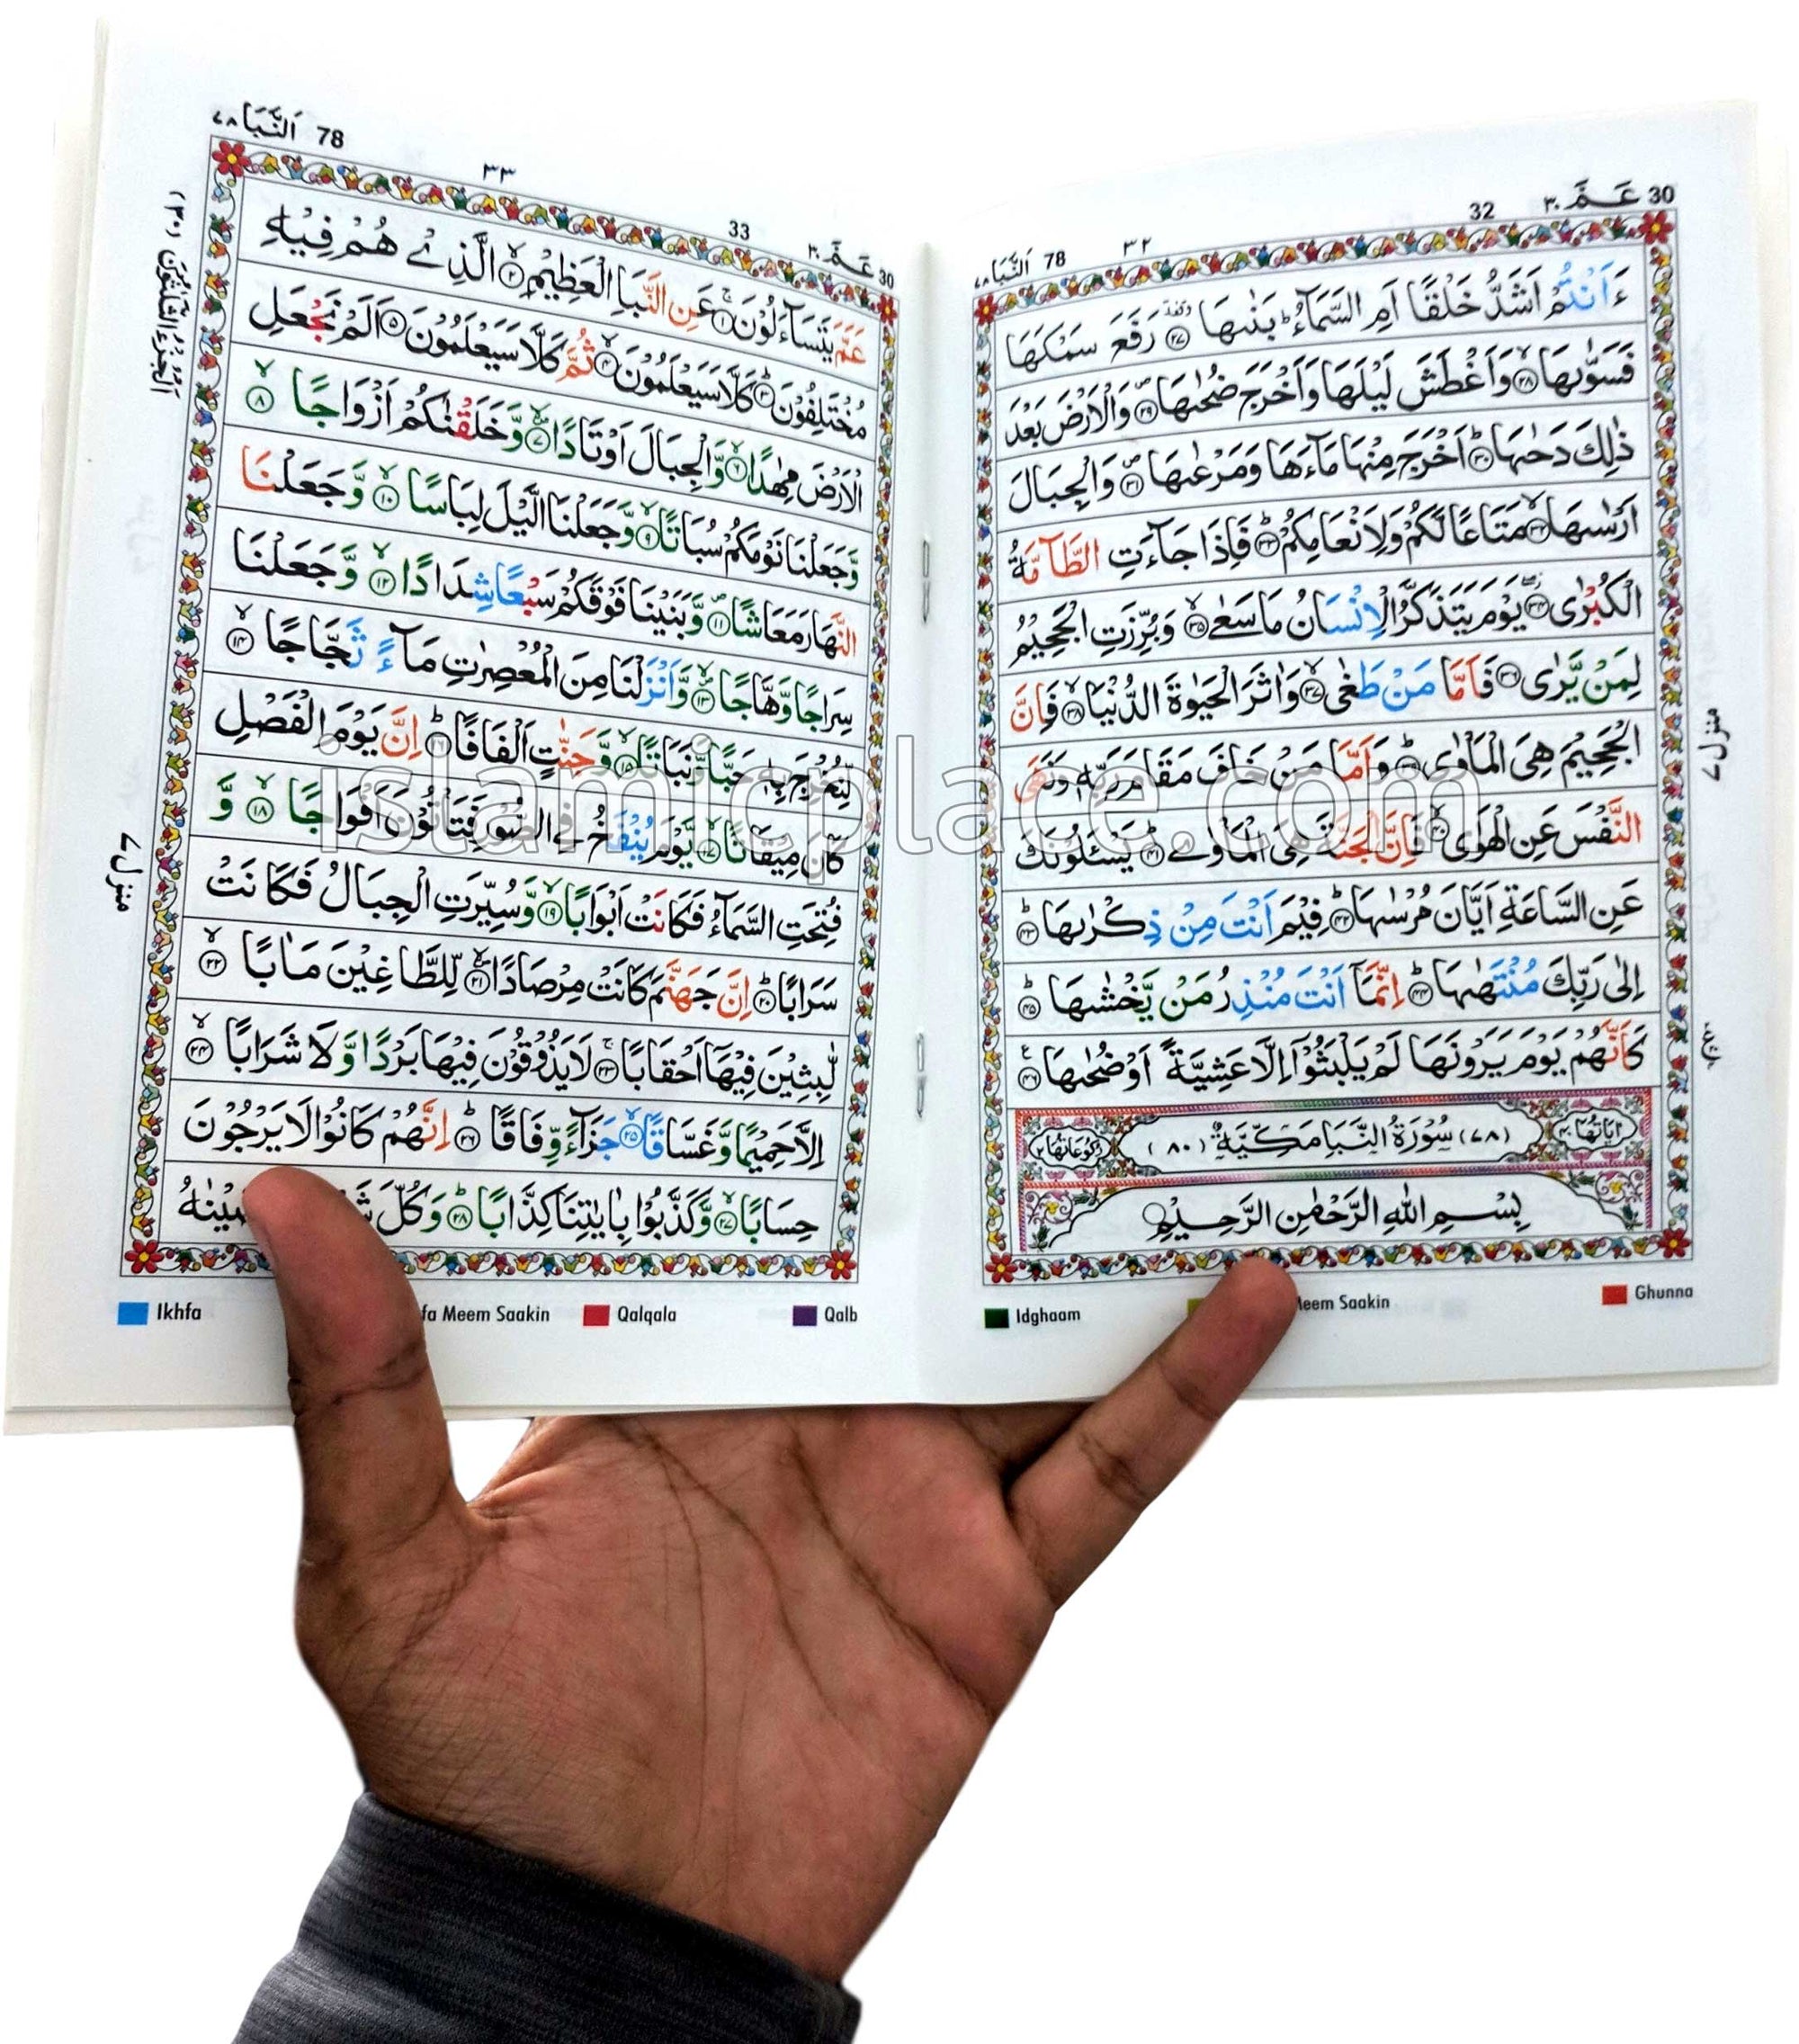 30 عَـمَّ ٣٠ 32 ٣٢ 78 اَلنَّبَا ٧٨
ءَاَنْتُمْ اَشَدُّ خَلْقًا اَمِ السَّمَآءُ ؕ بَنٰىهَا ۝٢٧ وقفة رَفَعَ سَمْكَهَا
فَسَوّٰىهَا ۙ۝٢٨ وَاَغْطَشَ لَيْلَهَا وَاَخْرَجَ ضُحٰىهَا ۪۝٢٩ وَالْاَرْضَ بَعْدَ
ذٰلِكَ دَحٰىهَا ؕ۝٣٠ اَخْرَجَ مِنْهَا مَآءَهَا وَمَرْعٰىهَا ۪۝٣١ وَالْجِبَالَ
اَرْسٰىهَا ۙ۝٣٢ مَتَاعًا لَّكُمْ وَلِاَنْعَامِكُمْ ؕ۝٣٣ فَاِذَا جَآءَتِ الطَّآمَّةُ
الْكُبْرٰى ۝٣٤ يَوْمَ يَتَذَكَّرُ الْاِنْسَانُ مَا سَعٰى ۙ۝٣٥ وَبُرِّزَتِ الْجَحِيْمُ
لِمَنْ يَّرٰى ۝٣٦ فَاَمَّا مَنْ طَغٰى ۙ۝٣٧ وَاٰثَرَ الْحَيٰوةَ الدُّنْيَا ۙ۝٣٨ فَاِنَّ
الْجَحِيْمَ هِيَ الْمَاْوٰى ؕ۝٣٩ وَاَمَّا مَنْ خَافَ مَقَامَ رَبِّهٖ وَنَهَى
النَّفْسَ عَنِ الْهَوٰى ۙ۝٤٠ فَاِنَّ الْجَنَّةَ هِيَ الْمَاْوٰى ؕ۝٤١ يَسْـَٔلُوْنَكَ
عَنِ السَّاعَةِ اَيَّانَ مُرْسٰىهَا ؕ۝٤٢ فِيْمَ اَنْتَ مِنْ ذِكْرٰىهَا ؕ۝٤٣
اِلٰى رَبِّكَ مُنْتَهٰىهَا ؕ۝٤٤ اِنَّمَآ اَنْتَ مُنْذِرُ مَنْ يَّخْشٰىهَا ؕ۝٤٥
كَاَنَّهُمْ يَوْمَ يَرَوْنَهَا لَمْ يَلْبَثُوْٓا اِلَّا عَشِيَّةً اَوْ ضُحٰىهَا ۝٤٦
اٰيَاتُهَا ٤٠ (٧٨) سُوْرَةُ النَّبَاِ مَكِّيَّةٌ (٨٠) رُكُوْعَاتُهَا ٢
بِسْمِ اللهِ الرَّحْمٰنِ الرَّحِيْمِ
منزل ٧
Idghaam Meem Saakin Ghunna
30 عَـمَّ ٣٠ 33 ٣٣ 78 اَلنَّبَا ٧٨
عَمَّ يَتَسَآءَلُوْنَ ۚ۝١ عَنِ النَّبَاِ الْعَظِيْمِ ۙ۝٢ الَّذِيْ هُمْ فِيْهِ
مُخْتَلِفُوْنَ ؕ۝٣ كَلَّا سَيَعْلَمُوْنَ ۙ۝٤ ثُمَّ كَلَّا سَيَعْلَمُوْنَ ۝٥ اَلَمْ نَجْعَلِ
الْاَرْضَ مِهٰدًا ۙ۝٦ وَّالْجِبَالَ اَوْتَادًا ۪ۙ۝٧ وَّخَلَقْنٰكُمْ اَزْوَاجًا ۙ۝٨
وَّجَعَلْنَا نَوْمَكُمْ سُبَاتًا ۙ۝٩ وَّجَعَلْنَا الَّيْلَ لِبَاسًا ۙ۝١٠ وَّجَعَلْنَا
النَّهَارَ مَعَاشًا ۪۝١١ وَّبَنَيْنَا فَوْقَكُمْ سَبْعًا شِدَادًا ۙ۝١٢ وَّجَعَلْنَا
سِرَاجًا وَّهَّاجًا ۪ۙ۝١٣ وَّاَنْزَلْنَا مِنَ الْمُعْصِرٰتِ مَآءً ثَجَّاجًا ۙ۝١٤
لِّنُخْرِجَ بِهٖ حَبًّا وَّنَبَاتًا ۙ۝١٥ وَّجَنّٰتٍ اَلْفَافًا ؕ۝١٦ اِنَّ يَوْمَ الْفَصْلِ
كَانَ مِيْقَاتًا ۙ۝١٧ يَّوْمَ يُنْفَخُ فِي الصُّوْرِ فَتَاْتُوْنَ اَفْوَاجًا ۙ۝١٨ وَّ
فُتِحَتِ السَّمَآءُ فَكَانَتْ اَبْوَابًا ۙ۝١٩ وَّسُيِّرَتِ الْجِبَالُ فَكَانَتْ
سَرَابًا ؕ۝٢٠ اِنَّ جَهَنَّمَ كَانَتْ مِرْصَادًا ۪ۙ۝٢١ لِّلطَّاغِيْنَ مَاٰبًا ۙ۝٢٢
لّٰبِثِيْنَ فِيْهَآ اَحْقَابًا ۚ۝٢٣ لَا يَذُوْقُوْنَ فِيْهَا بَرْدًا وَّلَا شَرَابًا ۙ۝٢٤
اِلَّا حَمِيْمًا وَّغَسَّاقًا ۙ۝٢٥ جَزَآءً وِّفَاقًا ؕ۝٢٦ اِنَّهُمْ كَانُوْا لَا يَرْجُوْنَ
حِسَابًا ۙ۝٢٧ وَّكَذَّبُوْا بِاٰيٰتِنَا كِذَّابًا ؕ۝٢٨ وَكُلَّ
الجزء الثلثون (٣٠)
منزل ٧
Ikhfa fa Meem Saakin Qalqala Qalb
islamicplace.com